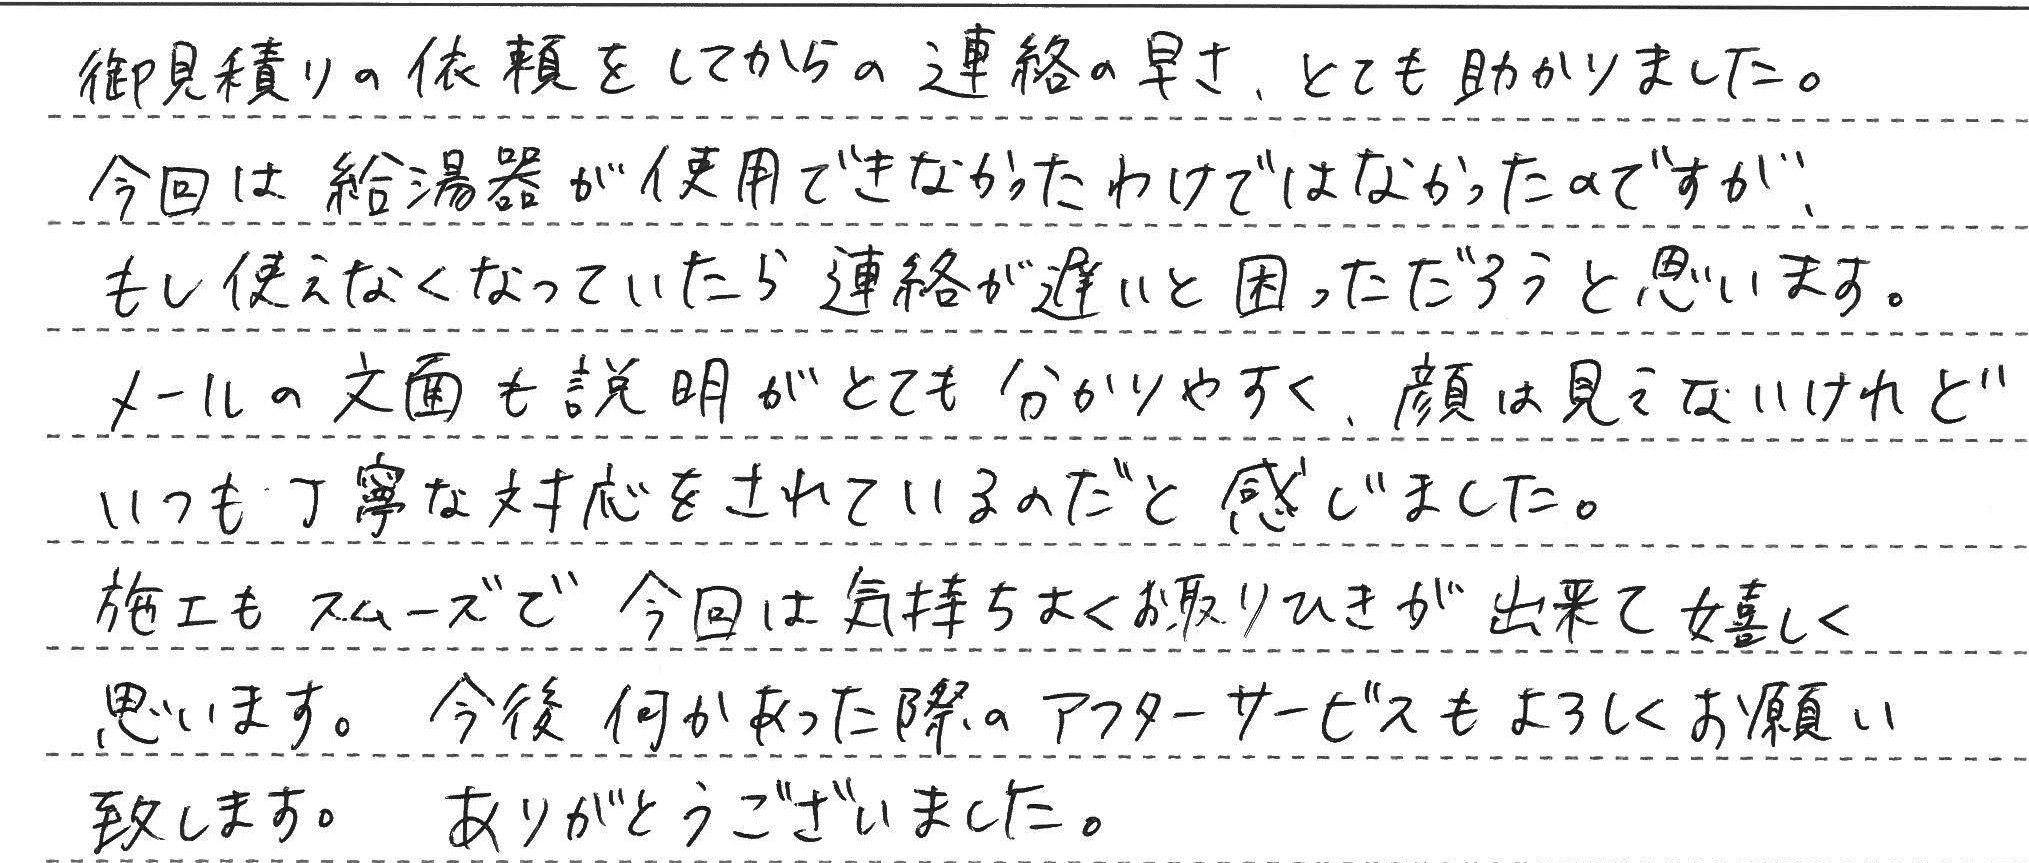 御見積りの依頼をしてからの連絡の早さ、とても助かりました。
今回は給湯器が使用できなかったわけではなかったのですが、
もし使えなくなっていたら連絡が遅いと困っただろうと思います。
メールの文面も説明がとても分かりやすく、顔は見えないけれど
いつも丁寧な対応をされているのだと感じました。
施工もスムーズで今回は気持ちよくお取りひきが出来て嬉しく
思います。 今後何かあった際のアフターサービスもよろしくお願い
致します。 ありがとうございました。